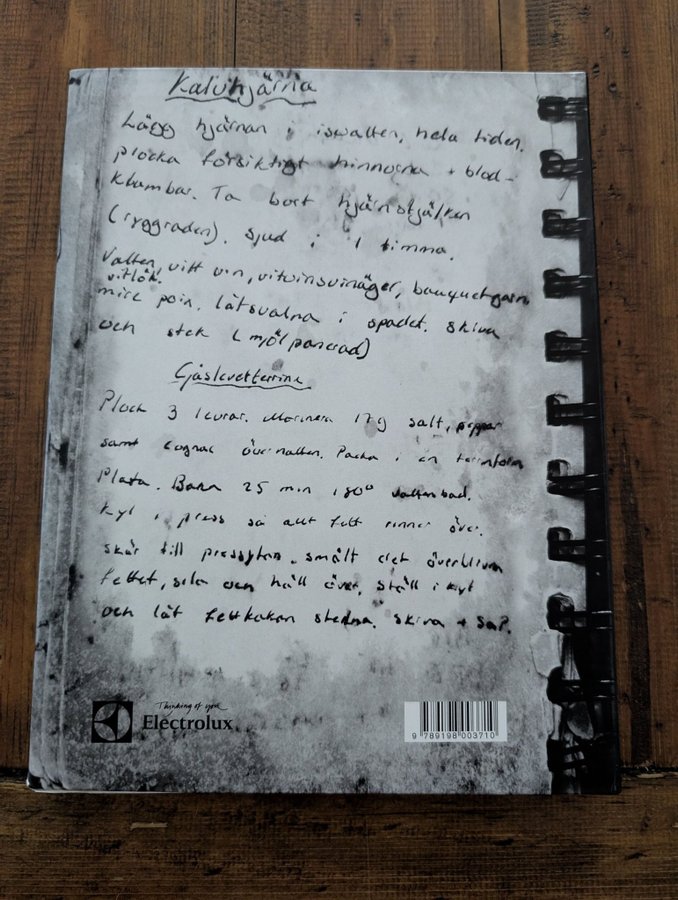 Kalvhjärna
Lägg hjärnan i isvatten, hela tiden.
plocka försiktigt hinnorna + blod-
klumbar. Ta bort hjärnstjälken
(ryggraden). sjud i 1 timma.
Vatten, vitt vin, vitvinsvinäger, bouquetgarni
vitlök!
mire poix. låt svalna i spadet. skiva
och stek (mjölpanerad)
Gåsleverterrine
Plock 3 levrar. Marinera 17g salt, peppar
samt cognac övernatten. Packa i en terrinform
Plasta. Baka 25 min 180° vattenbad.
Kyl i press så allt fett rinner över.
skär till pressytan. smält det överblivna
fettet, sila och häll över, ställ i kyl
och låt fettkakan stelna. skiva + Salt.
Thinking of you
Electrolux
9 789198 003710